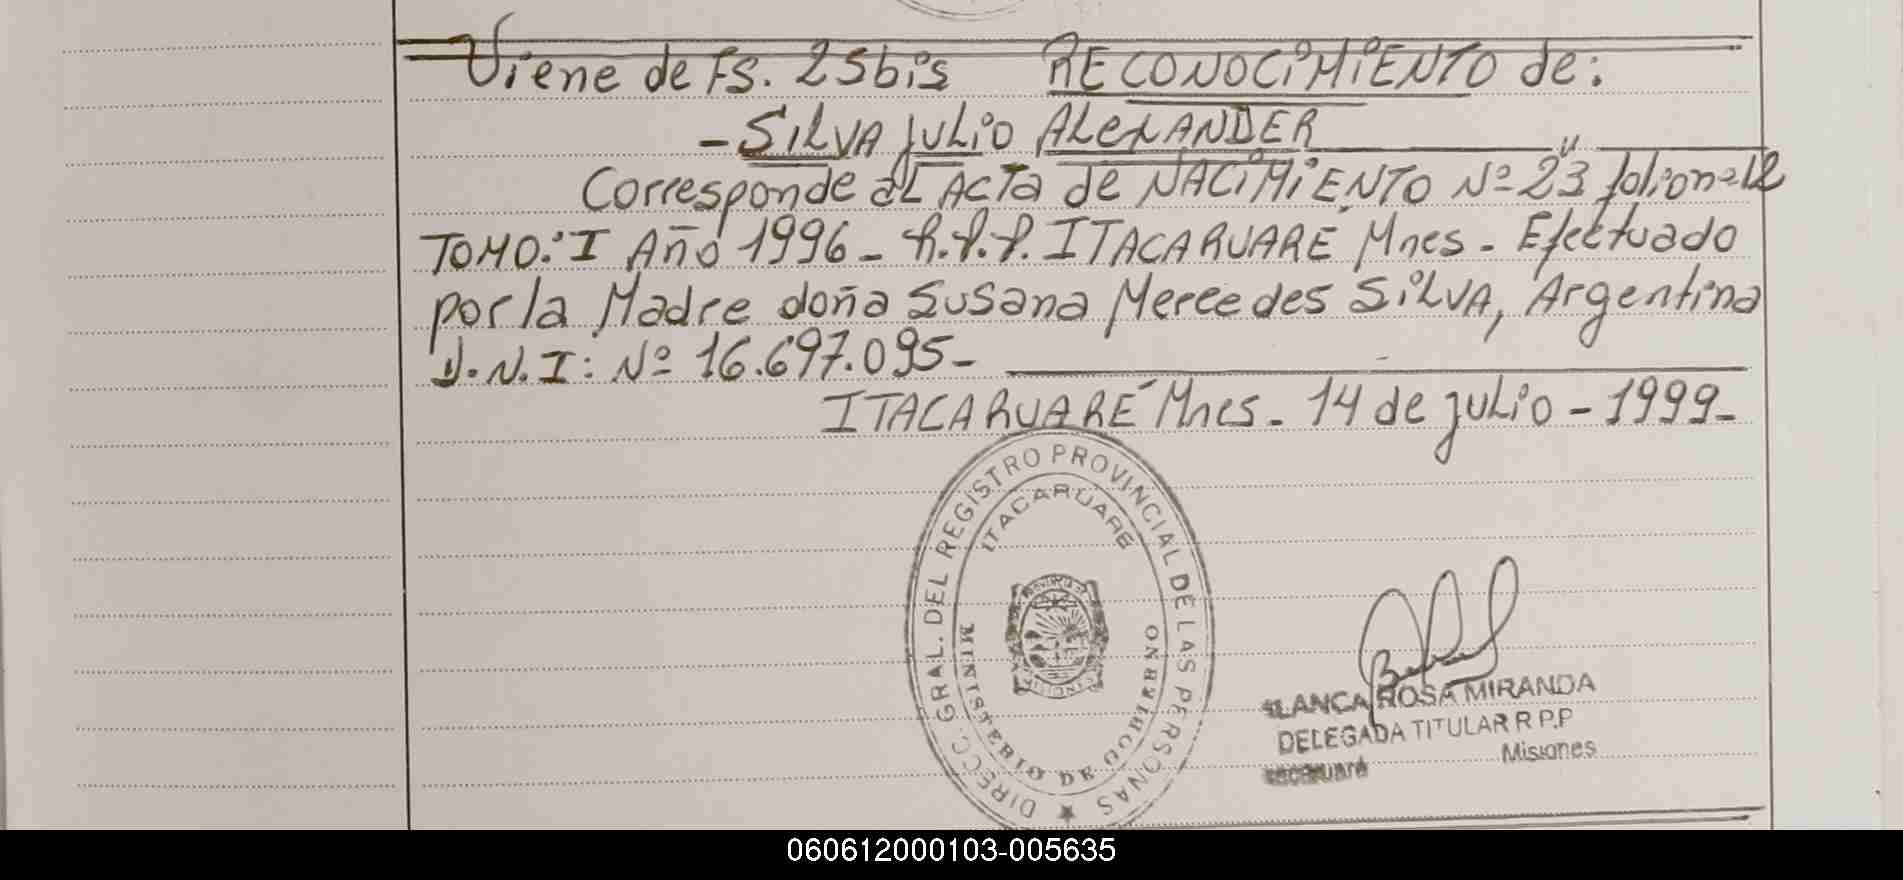 Viene de Fs. 25bis RECONOCIMIENTO de:
- SILVA JULIO ALEXANDER
Corresponde al Acta de NACIMIENTO Nº 23 folio nº 12
TOMO: I Año 1996 - R.P.P. ITACARUARE Mnes. - Efectuado
por la Madre doña Susana Mercedes SILVA, Argentina
D.N.I: Nº 16.697.095 -
ITACARUARÉ Mnes. 14 de julio - 1999 -
DIRECC. GRAL. DEL REGISTRO PROVINCIAL DE LAS PERSONAS
ITACARUARE
MINISTERIO DE GOBIERNO
BLANCA ROSA MIRANDA
DELEGADA TITULAR R P.P
Itacaruaré Misiones
060612000103-005635